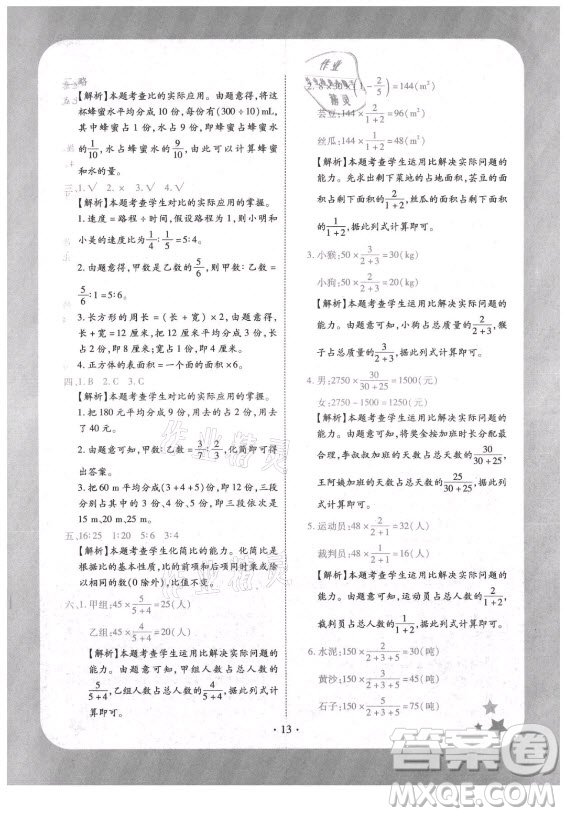 二、略
【解析】本题考查比的实际应用。由题意得,将这
杯蜂蜜水平均分成 10 份,每份有(300÷10)mL,
其中蜂蜜占 1 份,水占 9 份,即蜂蜜占蜂蜜水的
1/10,水占蜂蜜水的9/10,据此可以计算蜂蜜
和水的量。
三、1.√ 2.× 3.× 4.√
【解析】本题考查学生对比的实际应用的掌握。
1. 速度=路程÷时间,假设路程为 1,则小明和
小美的速度比为1/4:1/5=5:4。
2. 由题意得,甲数是乙数的5/6,则甲数:乙数=
5/6:1=5:6。
3. 长方形的周长=(长+宽)×2。由题意得,
长+宽=12 厘米,把 12 厘米平均分成 3 份,每
份是 4 厘米,即长 8 厘米,宽 4 厘米。
4. 正方体的表面积=面积×6。
四、1.B 2.C 3.C
【解析】本题考查学生对比的实际应用的掌握。
1. 把 180 元平均分成 9 份,用去的占 2 份,用去
了 40 元。
2. 由题意可知,甲数:乙数=3/7:2/3,化简即可得
出答案。
3. 把 60 m 平均分成(3+4+5)份,即 12 份,三段
分别占其中的 3 份、4 份、5 份,即三段依次是
15 m、20 m、25 m。
五、16:25 1:20 5:6 3:4
【解析】本题考查学生化简比的能力。化简比是
根据比的基本性质:比的前项和后项同时乘或除
以相同的数(0 除外),比值不变。
六、1. 甲组:45×5/(5+4)=25(人)
乙组:45×4/(5+4)=20(人)
【解析】本题考查学生运用比解决实际问题的
能力。由题意可知,甲组人数占总人数的
5/(5+4),乙组人数占总人数的4/(5+4),据此列式计
算即可。
2. 8×30×(1-2/5)=144(m²)
芸豆:144×2/(1+2)=96(m²)
丝瓜:144×1/(1+2)=48(m²)
【解析】本题考查学生运用比解决实际问题的
能力。先求出剩下菜地的占地面积,芸豆的面
积占剩下面积的2/(1+2),丝瓜的面积占剩下面积
的1/(1+2),据此列式计算即可。
3. 小猴:50×3/(2+3)=30(kg)
小狗:50×2/(2+3)=20(kg)
【解析】本题考查学生运用比解决实际问题的
能力。由题意可知,小狗占总质量的2/(2+3),猴
子占总质量的3/(2+3),据此列式计算即可。
4. 男:2750×30/(30+25)=1500(元)
女:2750-1500=1250(元)
【解析】本题考查学生运用比解决实际问题的
能力。由题意可知,将奖金按加班时长分配最
合理,李叔叔加班的天数占总天数的30/(30+25),
王阿姨加班的天数占总天数的25/(30+25),据此列
式计算即可。
5. 运动员:48×2/(2+1)=32(人)
裁判员:48×1/(2+1)=16(人)
【解析】本题考查学生运用比解决实际问题的
能力。由题意可知,运动员占总人数的2/(2+1),
裁判员占总人数的1/(2+1),据此列式计算即可。
6. 水泥:150×2/(2+3+5)=30(吨)
黄沙:150×3/(2+3+5)=45(吨)
石子:150×5/(2+3+5)=75(吨)
· 13 ·
作业精灵
答案卷
MXQE.COM